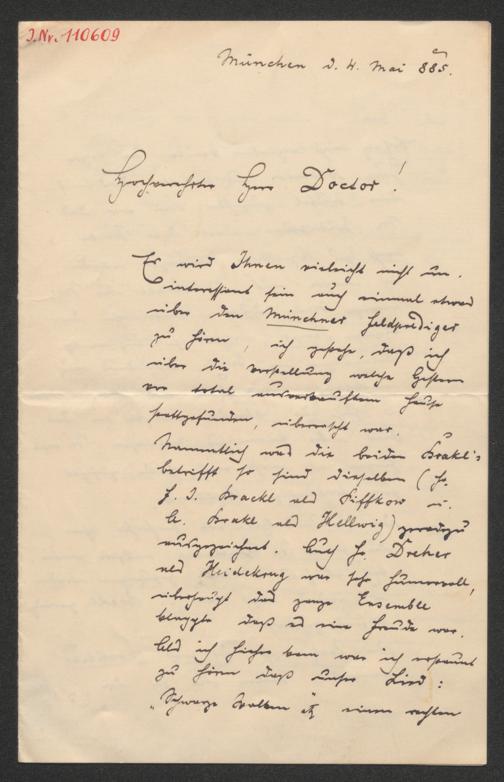 J.Nr. 110609
München d. 4. Mai 885.
Hochverehrter Herr Doctor!
Es wird Ihnen vielleicht nicht un-
interessant sein auch einmal etwas
über den Münchner Feldprediger
zu hören, ich gestehe, daß ich
über die Vorstellung welche Gestern
vor total ausverkauftem Hause
stattgefunden, überrascht war.
Namentlich was die beiden Brakl's
betrifft so sind dieselben (H.
F. J. Brackl als Piffkow u.
A. Brakl als Hellwig) geradezu
ausgezeichnet. Auch H. Dreher
als Heidekrug war sehr humorvoll,
überhaupt das ganze Ensemble
klappte daß es eine Freude war.
Als ich hieher kam war ich erstaunt
zu hören daß unser Lied:
"Schwarze Wolken" einen rechten